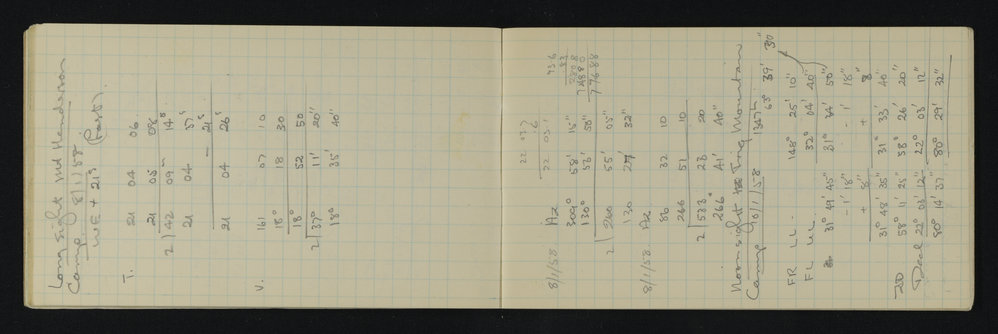 Long Sight Mt Henderson
Camp. 8/1/58
W E + 21s (Fast).
T. 21 04 06
21 05 08
2) 42 09 14s
21 04 37s
- 21s
21 04 26s
V. 161 07 10
18° 18 30
18° 52 50
2) 37° 11' 20"
18° 35' 40"
22 03.7
.6
22 03.1
43.6
83
7688
8/1/58 Az
309° 58' 15"
130° 53' 50"
2) 260 55' 05"
130 27' 32"
8/1/58 Az
86 32 10
266 51 10
2) 533 23 20
266° 41' 40"
Noon sight Trig Mountain
Camp 9/1/58 1347h
63° 39' 30"
FR LL. 148° 25' 10"
FL UL 32° 04' 40"
31° 49' 45" 31° 34' 50"
- 1' 18" - 1' 18"
+ 8" + 8
31° 48' 35" 31° 33' 40"
ZD 58° 11' 25" 58° 26' 20"
Decl 22° 03' 12" 22° 03' 12"
80° 14' 37" 80° 29' 32"